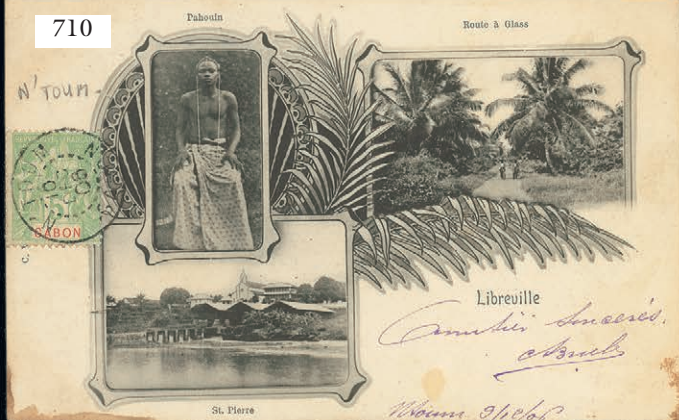 710
Pahouin
Route à Glass
N'TOUM.
GABON
Libreville
Amitiés sincères.
St. Pierre
Ntoum